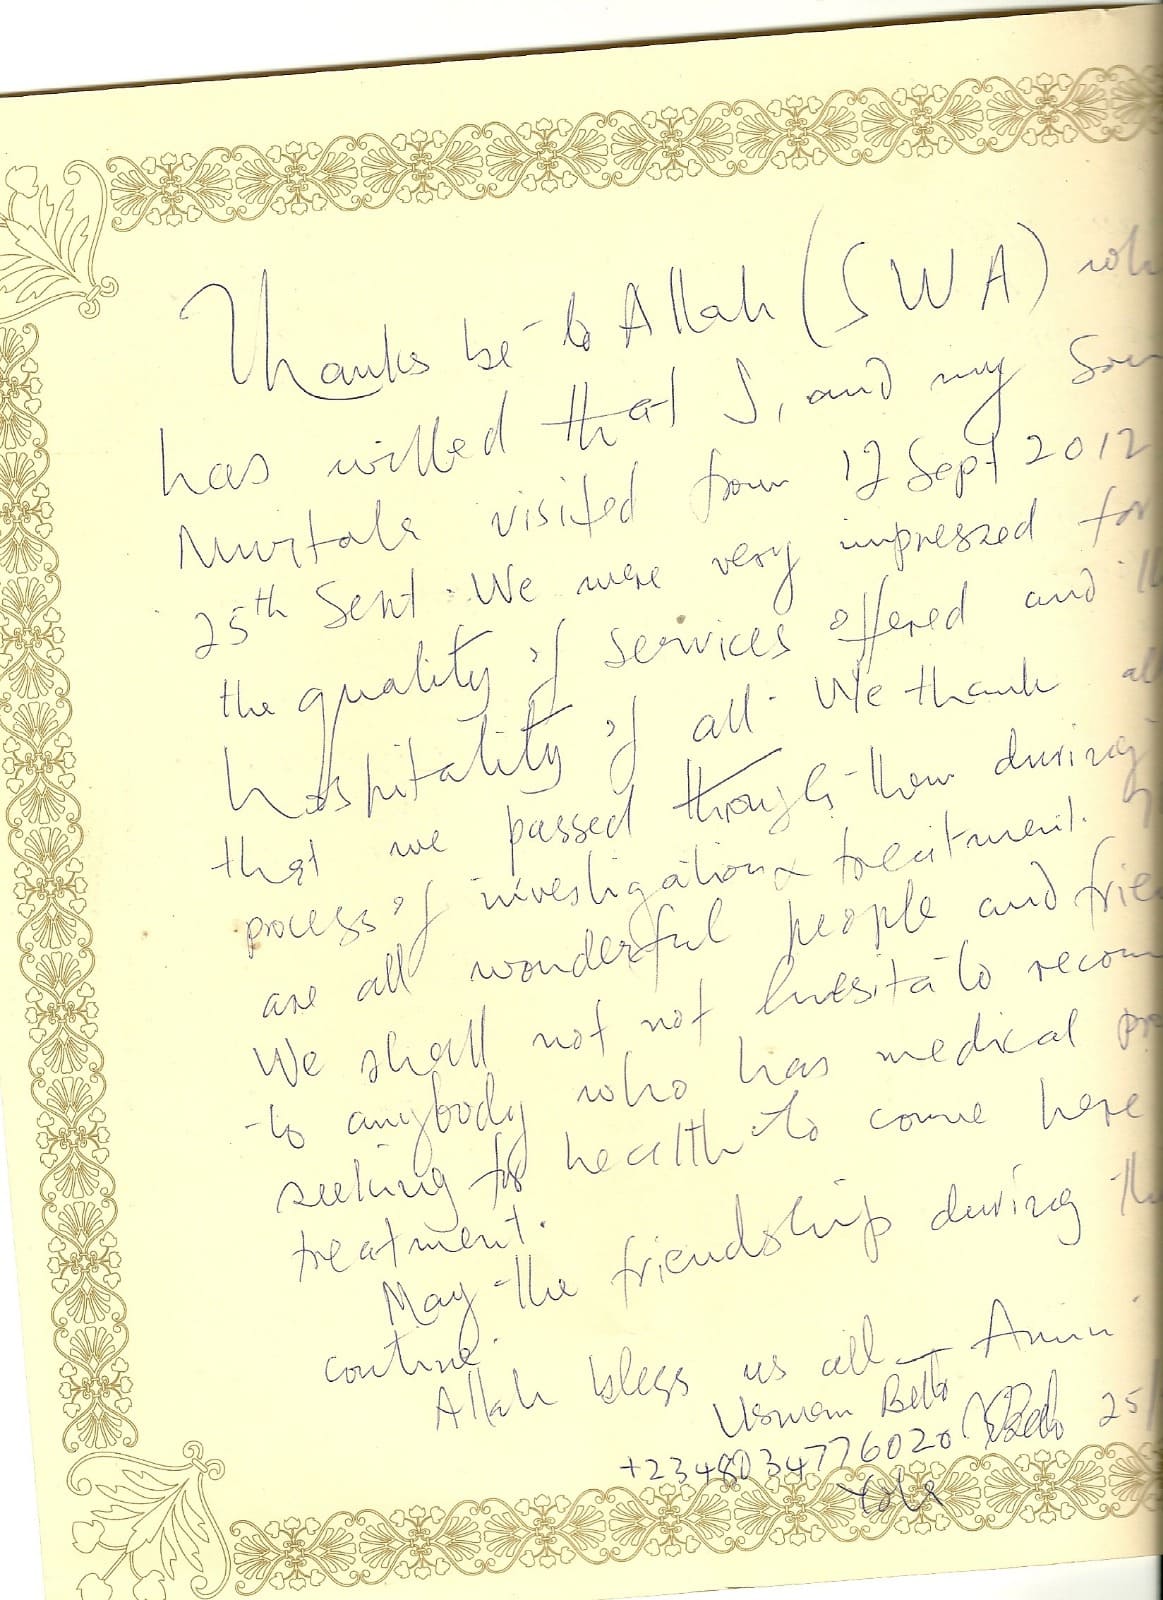 Thanks be to Allah (SWA) wh
has willed that I, and my Son
Murtala visited from 12 Sept 2012
25th Sent. We were very impressed for
the quality of services offered and th
hospitality of all. We thank all
that we passed through them during
process of investigation & treatment.
are all wonderful people and frie
We shall not not huesita to recom
to anybody who has medical pro
seeking for health to come here
treatment.
May the friendship during th
contine.
Allah blegs us all - Amin
Usman Bello 25/
+2348034776020
Yola